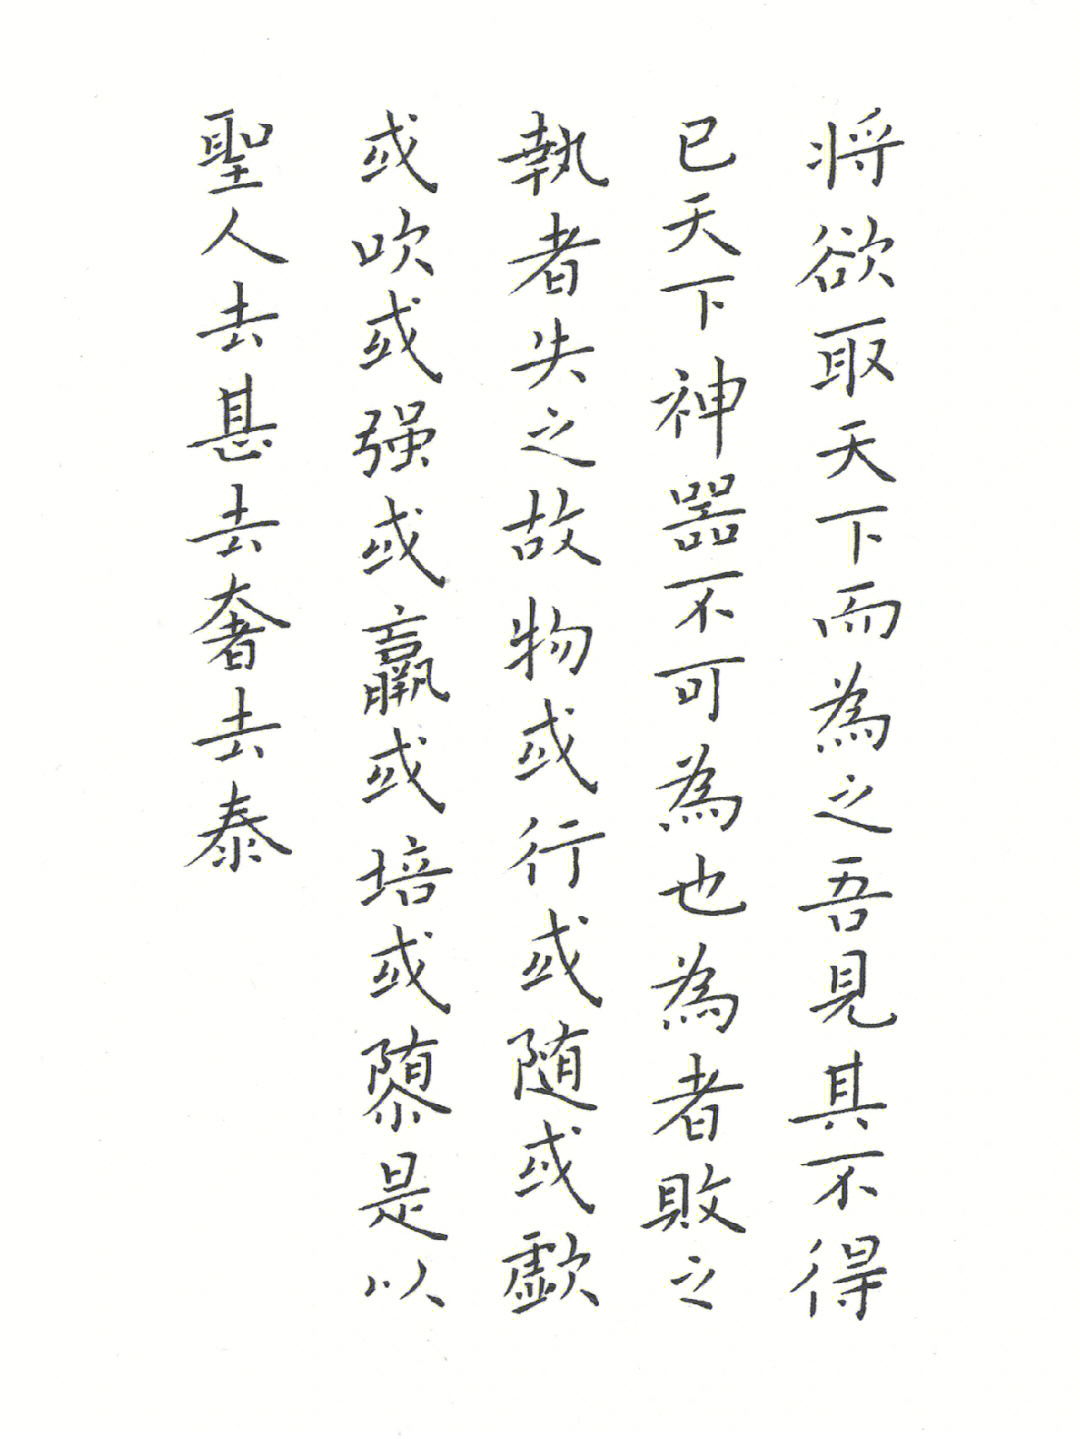 将欲取天下而為之吾見其不得
已天下神器不可為也為者敗之
執者失之故物或行或随或歔
或吹或强或羸或培或隳是以
聖人去甚去奢去泰